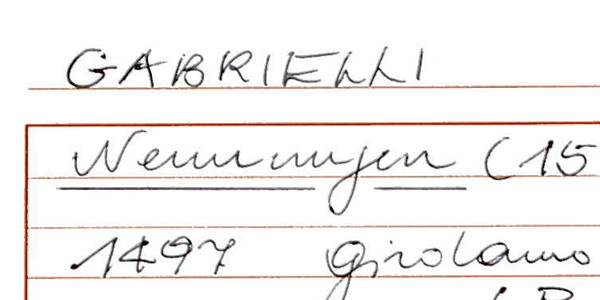 GABRIELLI
Nennungen (15
1497 Girolamo